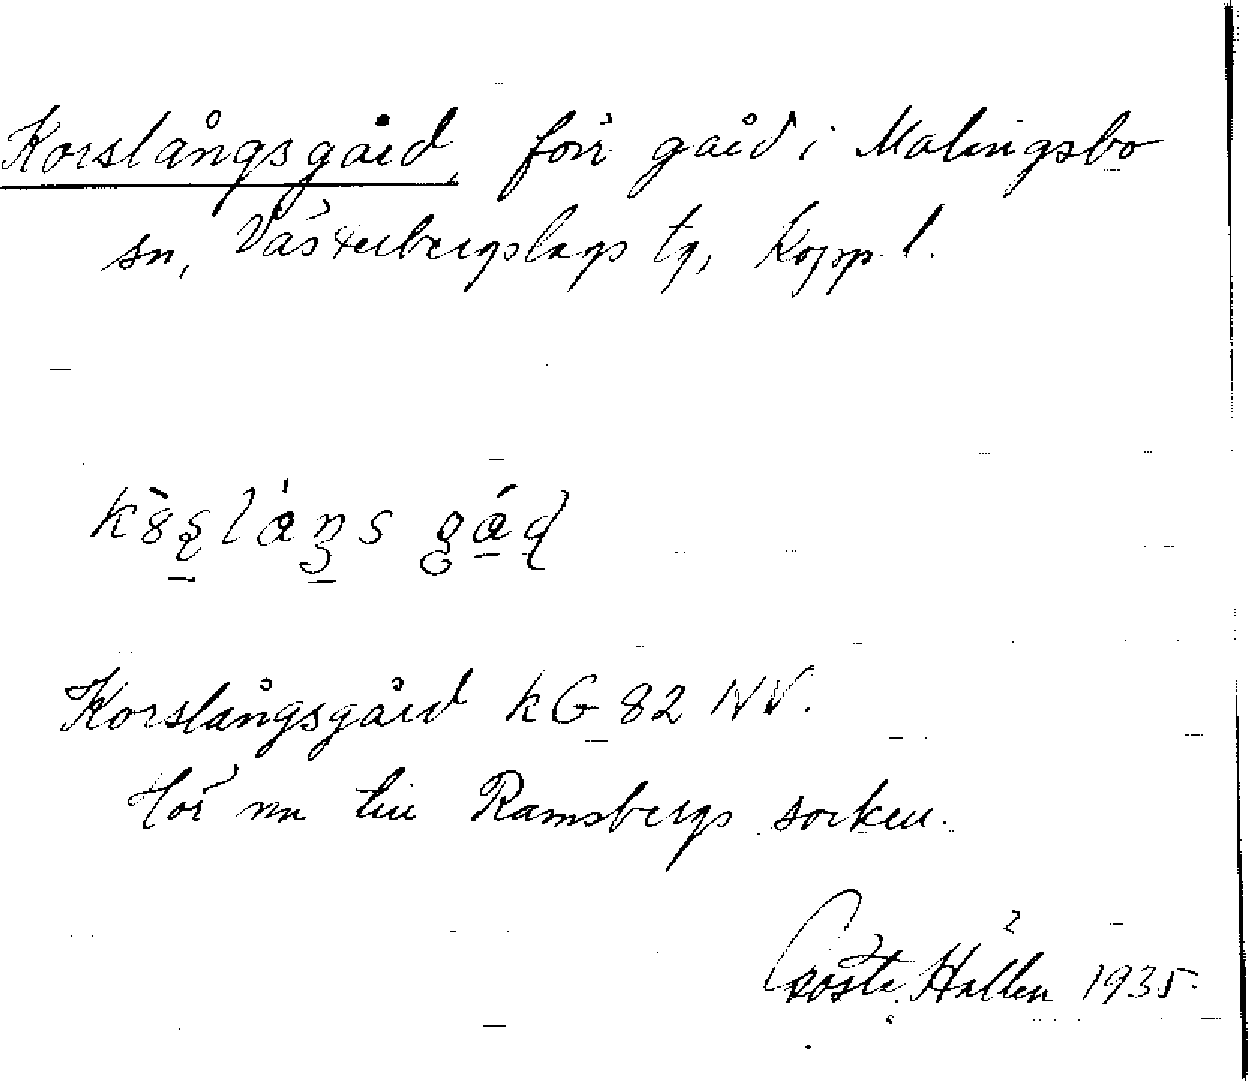 Korslångsgård, förr gård i Malingsbo
sn, Västerbergslags tg, Kopp. l.
Korslångsgård kG 82 NV.
Hör nu till Ramsbergs socken.
Gösta Hallen 1935.